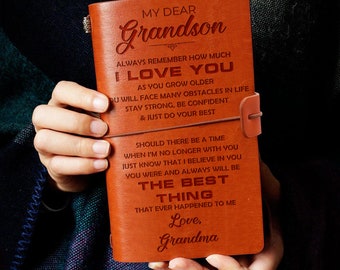 MY DEAR
Grandson
ALWAYS REMEMBER HOW MUCH
I LOVE YOU
AS YOU GROW OLDER
YOU WILL FACE MANY OBSTACLES IN LIFE
STAY STRONG, BE CONFIDENT
& JUST DO YOUR BEST
SHOULD THERE BE A TIME
WHEN I'M NO LONGER WITH YOU
JUST KNOW THAT I BELIEVE IN YOU
YOU WERE AND ALWAYS WILL BE
THE BEST
THING
THAT EVER HAPPENED TO ME
Love,
Grandma